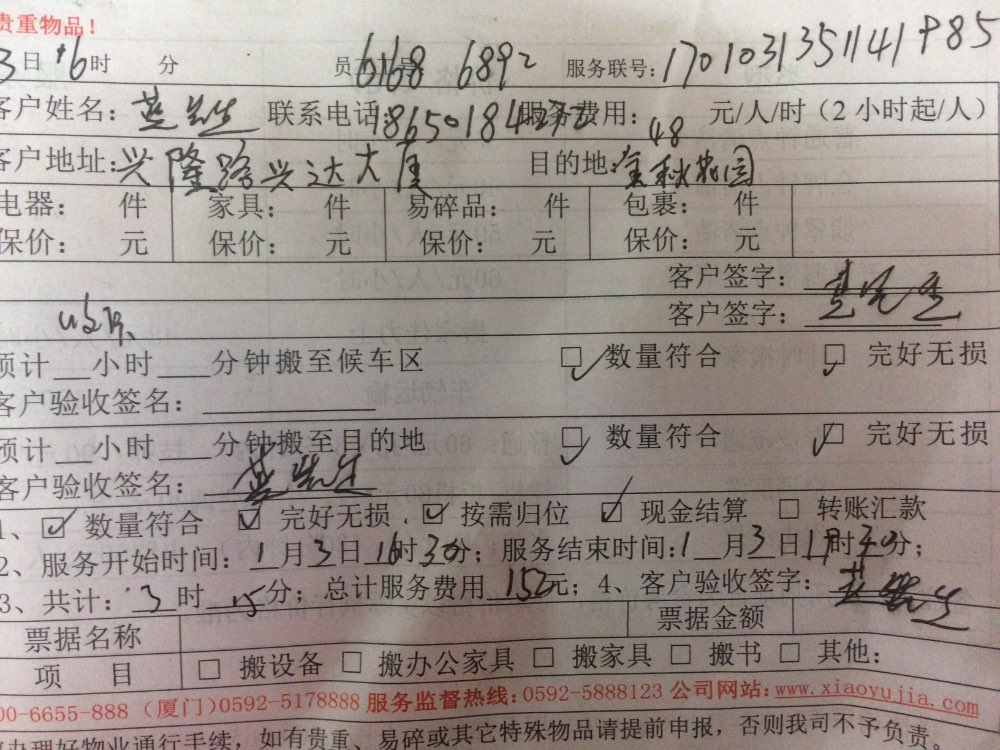 贵重物品！
3日 16时 分 员工号 6168 6892 服务联号：
客户姓名： 先生 联系电话： 服务费用：48 元/人/时（2小时起/人）
客户地址：兴隆路兴达大厦 目的地：金秋花园
电器： 件 家具： 件 易碎品： 件 包裹： 件
保价： 元 保价： 元 保价： 元 保价： 元
客户签字：
客户签字：
预计__小时___分钟搬至候车区 □数量符合 □完好无损
客户验收签名：
预计__小时___分钟搬至目的地 □数量符合 □完好无损
客户验收签名：
1、□数量符合 □完好无损 □按需归位 □现金结算 □转账汇款
2、服务开始时间：1月3日16时30分；服务结束时间：1月3日 时 分；
3、共计：3时 15分；总计服务费用 152元；4、客户验收签字：
票据名称 票据金额
项 目 □搬设备 □搬办公家具 □搬家具 □搬书 □其他：
00-6655-888（厦门）0592-5178888 服务监督热线：0592-5888123 公司网站：www.xiaoyujia.com
办理好物业通行手续，如有贵重、易碎或其它特殊物品请提前申报，否则我司不予负责。